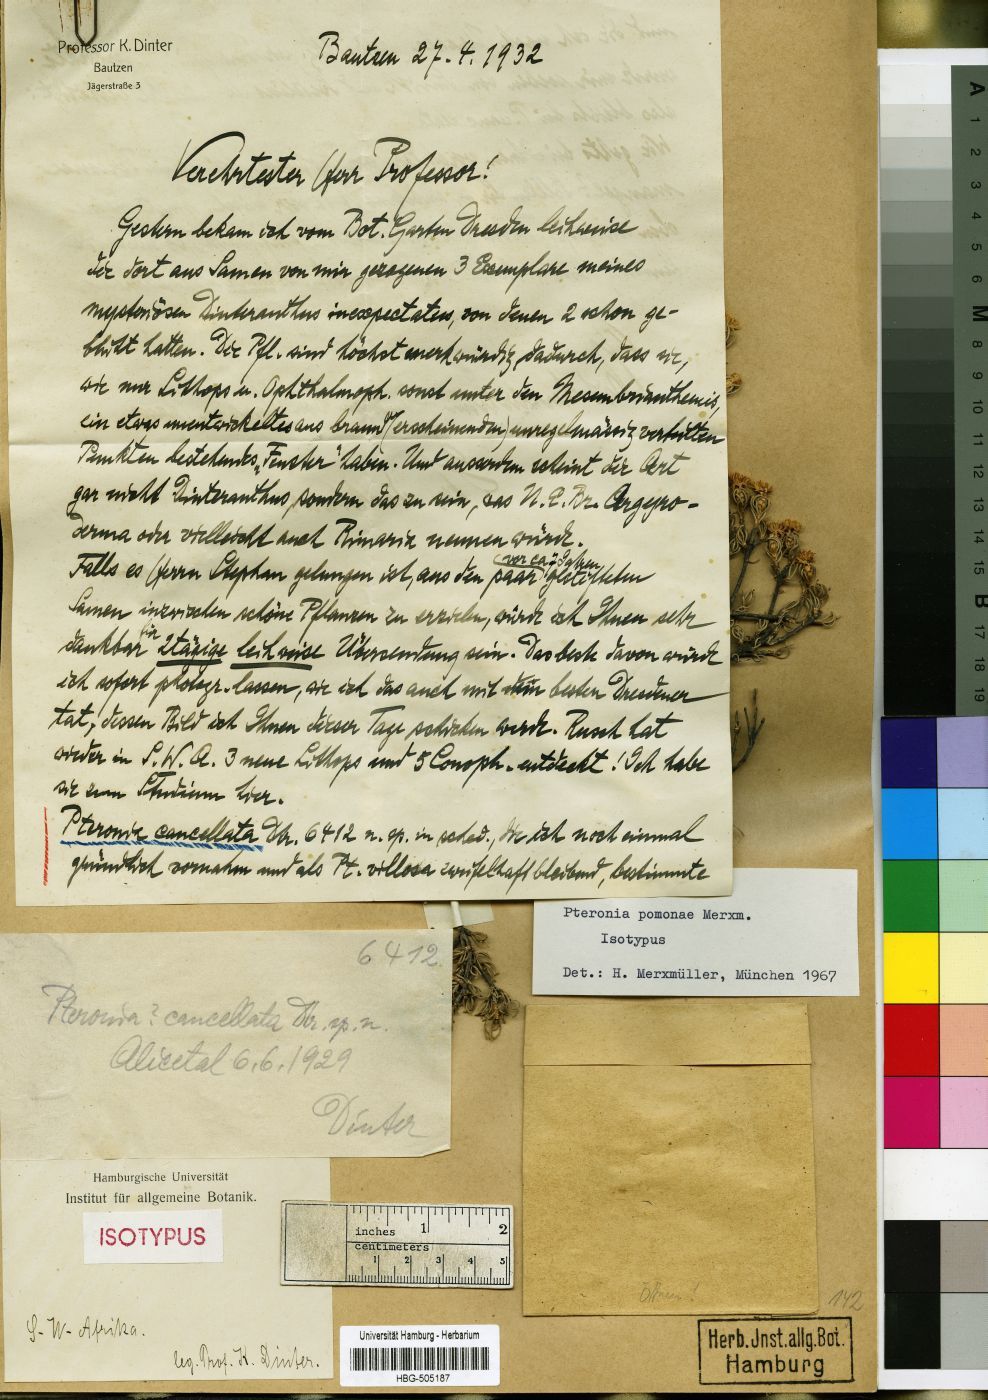 Professor K. Dinter
Bautzen
Jägerstraße 3
Bautzen 27.4.1932
Verehrtester Herr Professor!
Gestern bekam ich vom Bot. Garten Dresden leihweise
die dort aus Samen von mir gezogenen 3 Exemplare meines
mysteriösen Dinteranthus inexpectatus, von denen 2 schon ge-
blüht hatten. Die Pfl. sind höchst merkwürdig dadurch, dass sie,
wie nur Lithops u. Ophthalmoph. sonst unter den Mesembrianthemis,
ein etwas unentwickeltes aus braun (erscheinenden) unregelmässig verteilten
Punkten bestehendes „Fenster" haben. Und ausserdem scheint die Art
gar nicht Dinteranthus, sondern das zu sein, was N. E. Br. Argyro-
derma oder vielleicht auch Rimaria nennen würde.
Falls es Herrn Stephan gelungen ist, aus den paar vor ca. Jahren
Samen inzwischen schöne Pflanzen zu erziehen, würde ich Ihnen sehr
dankbar für 2tägige leihweise Übersendung sein. Das beste davon würde
ich sofort photogr. lassen, wie ich das auch mit dem besten Dresdener
tat, dessen Bild ich Ihnen dieser Tage schicken werde. Rusch hat
wieder in S. W. A. 3 neue Lithops und 5 Conoph. entdeckt! Ich habe
sie zum Studium hier.
Pteronia cancellata Dtr. 6412 n. sp. in sched., die ich noch einmal
gründlich vornahm und als Pt. villosa zweifelhaft bleibend, bestimmte
Pteronia pomonae Merxm.
Isotypus
Det.: H. Merxmüller, München 1967
6412
Pteronia? cancellata Dtr. sp. n.
Alicetal 6.6.1929
Dinter
Hamburgische Universität
Institut für allgemeine Botanik.
ISOTYPUS
S-W-Afrika.
leg. Prof. K. Dinter.
inches 1 2
centimeters
1 2 3 4 5
Universität Hamburg - Herbarium
HBG-505187
142
Herb. Jnst. allg. Bot.
Hamburg
A
1
2
3
4
5
6
M
8
9
10
11
12
13
14
15
B
17
18
19